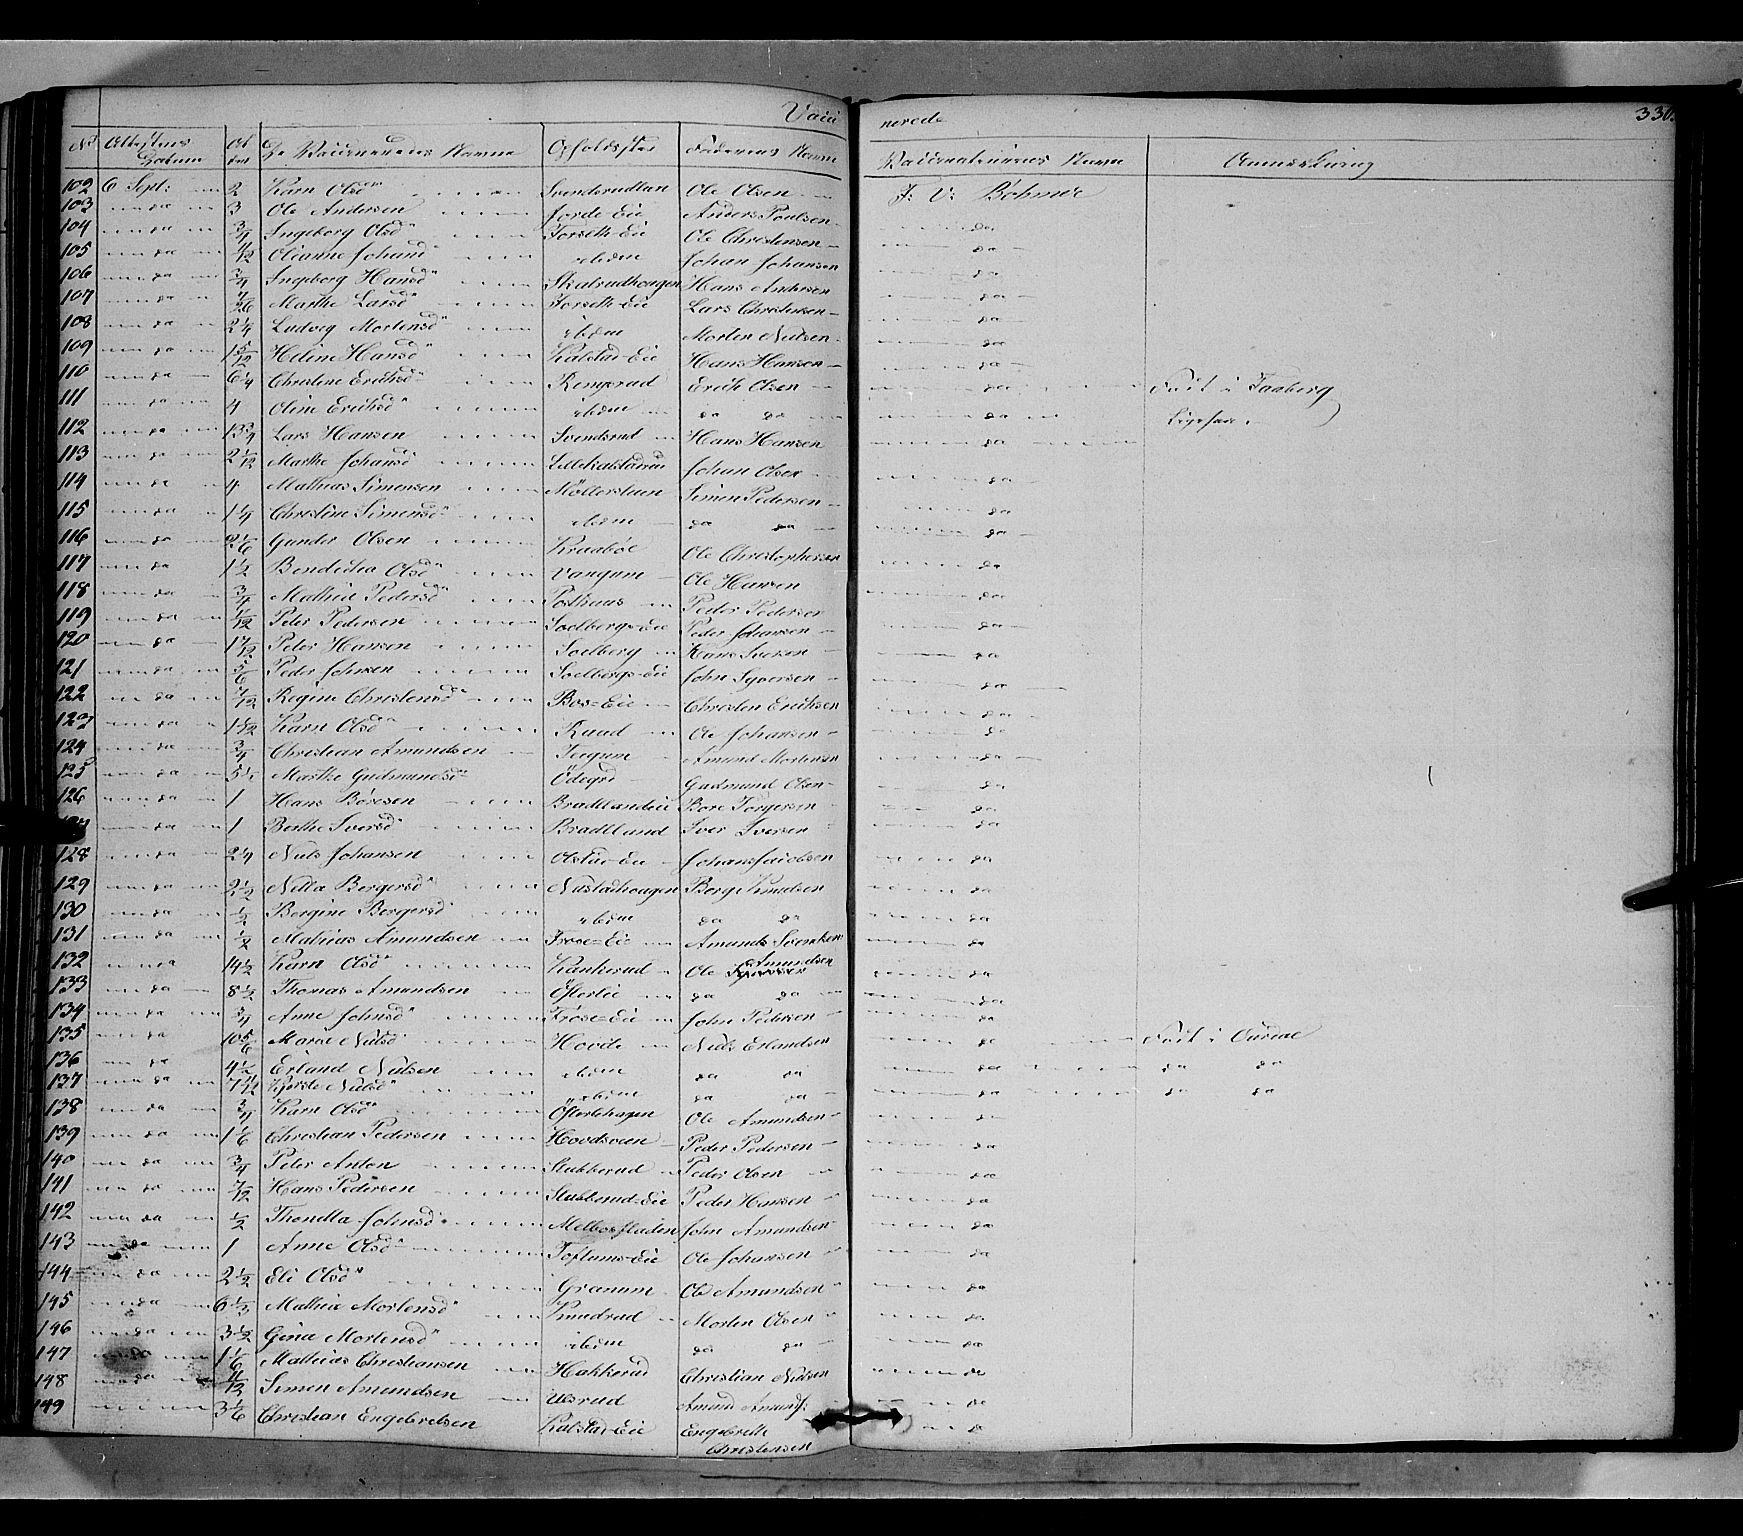 Vacci nerede 330.
No Attestens Datum Al der De Vaccineredes Navne Opholdssted Faderens Navn Vaccinateurens Navne Anmærkning
102 6 Sept: 2 Karn Olsd Svendsrudlun Ole Olsen J: V: Böhmer
103 da 3 Ole Andersen Jorde Eie Anders Poulsen da
104 da 3/4 Ingeborg Olsd Forseth-Eie Ole Christensen da
105 da Olianne Johansd ibidem Johan Johansen da
106 da 3/4 Ingeborg Hansd Skalrudhougen Hans Andersen da
107 da Marthe Larsd Forseth-Eie Lars Christensen da
108 da 2 1/4 Ludvig Mortensd ibidem Morten Nielsen da
109 da 1 5/12 Heline Hansd Kalstad-Eie Hans Hansen da
110 da 6 1/4 Christine Eriksd Ringsrud Erik Olsen da Født i Faaberg
111 da 4 Oline Eriksd ibidem da da da Ligesaa.
112 da 13 3/4 Lars Hansen Svendsrud Hans Hansen da
113 da 2 1/12 Marthe Johansd Lillekalstadrud Johan Olsen da
114 da 4 Mathias Simensen Möllerstuen Simen Pedersen da
115 da 1 1/4 Christine Simensd ibidem da da da
116 da 2 1/6 Gunder Olsen Kraabøl Ole Christophersen da
117 da 1 1/2 Bendicha Olsd Vangum Ole Hansen da
118 da 3/4 Mathia Pedersd Posthuus Peder Pedersen da
119 da 1/12 Peder Pedersen Soelbergs-Eie Peder Johansen da
120 da 1 7/12 Peder Hansen Soelberg Hans Iversen da
121 da 5/6 Peder Johnsen Soelbergs-Eie John Syversen da
122 da 7/12 Regine Christensd Boe-Eie Christen Eriksen da
123 da Karn Olsd Ruud Ole Johansen da
124 da 3/4 Christian Amundsen Amund Mortensen da
125 da Marthe Gudmundsd Ödegrd Gudmund Olsen da
126 da 1 Hans Børesen Bradtlandeie Bore Torgersen da
da 1 Berthe Iversd Bradtland Iver Iversen da
128 da 2 1/4 Niels Johansen Olstad-Eie Johans Jacobsen da
129 da 2 1/2 Nilla Bergersd Nustadhougen Berg Knudsen da
130 da 1/2 Bergine Bergersd ibidem da da da
131 da 1/2 Mathias Amundsen Frøse-Eie Amund Svendsen da
132 da 14 1/2 Karn Olsd Kankerud Ole Amundsen da
133 da 8 1/2 Thomas Amundsen Österlie da da da
134 da 3/4 Anne Johnsd Frøse-Eie John Pedersen da
135 da 10 5/6 Marie Nielsd Hovde Niels Erlandsen da Født i Öurdal
136 da 4 1/2 Erland Nielsen ibidem da da da da da
137 da Kjersti Nielsd ibidem da da da da da
138 da 3/4 Karn Olsd Österlihagen Ole Amundsen da
139 da 1 1/6 Christian Pedersen Hovdsveen Peder Pedersen da
140 da 3/4 Peter Anton Stubberud Peder Olsen da
141 da 7/12 Hans Pedersen Stubberud-Eie Peder Hansen da
142 da 1/2 Thondla Johnsd Melbosfladen John Amundsen da
143 da 1 Anne Olsd Toftums-Eie Ole Johansen da
144 da 2 1/2 Eli Olsd Granum Ole Amundsen da
145 da 6 1/2 Mathia Mortensd Knudrud Morten Olsen da
146 da 3 1/2 Gina Mortensd ibidem da da da
147 da 1 1/6 Mathias Christiansen Hakkerud Christian Nielsen da
148 da 11/12 Simen Amundsen Ulsrud Amund Amunds: da
149 3 1/6 Christian Engebretsen Kalstad-Eie Engebrith Christensen da